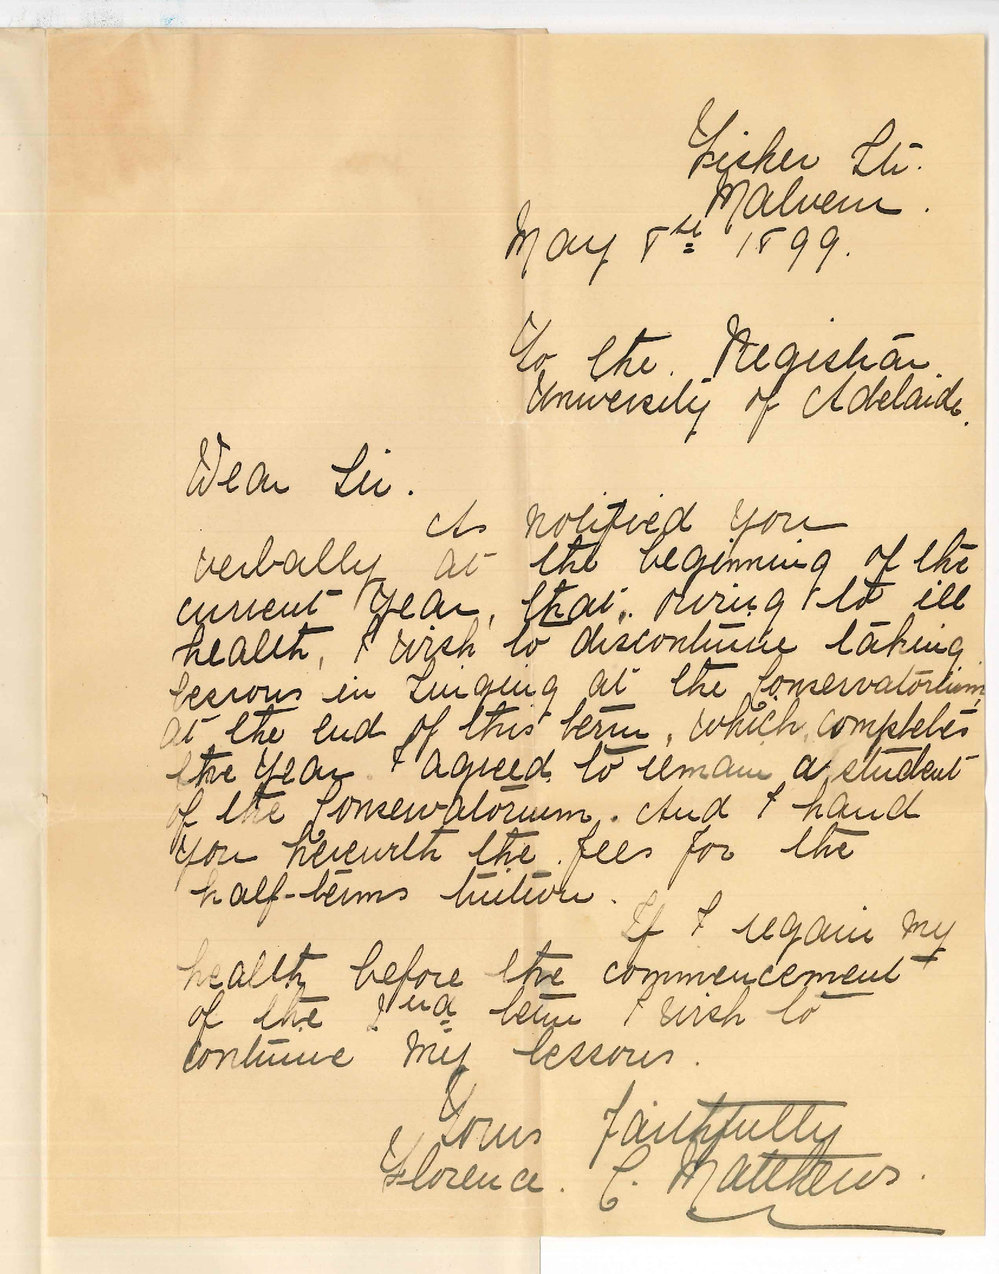 Fisher Str.
Malvern.
May 8th 1899.
To the Registrar
University of Adelaide.
Dear Sir.
As notified you
verbally at the beginning of the
current year, that, owing to ill
health, I wish to discontinue taking
lessons in Singing at the Conservatorium
at the end of this term, which completes
the year I agreed to remain a student
of the Conservatorium. And I hand
you herewith the fees for the
half-terms tuition.
If I regain my
health before the commencement
of the 2nd term I wish to
continue my lessons.
Yours faithfully
Florence. C. Matthews.